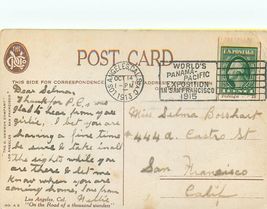 POST CARD
THIS SIDE FOR CORRESPONDENCE
LOS ANGELES, CAL.
OCT 14
1-PM
1913
WORLD'S
PANAMA-PACIFIC
EXPOSITION
IN SAN FRANCISCO
1915
U.S. POSTAGE
Dear Selma,
Thanks for P.C., was
glad to hear from you
girlie. I bet you are
having a fine time
be sure & take in all
the sights while you
are there so let me
know when you are
coming home, love from
Los Angeles, Cal. Hattie
"On the Road of a thousand wonders"
Miss Selma Bosshart
444a Castro St
San Francisco
Calif